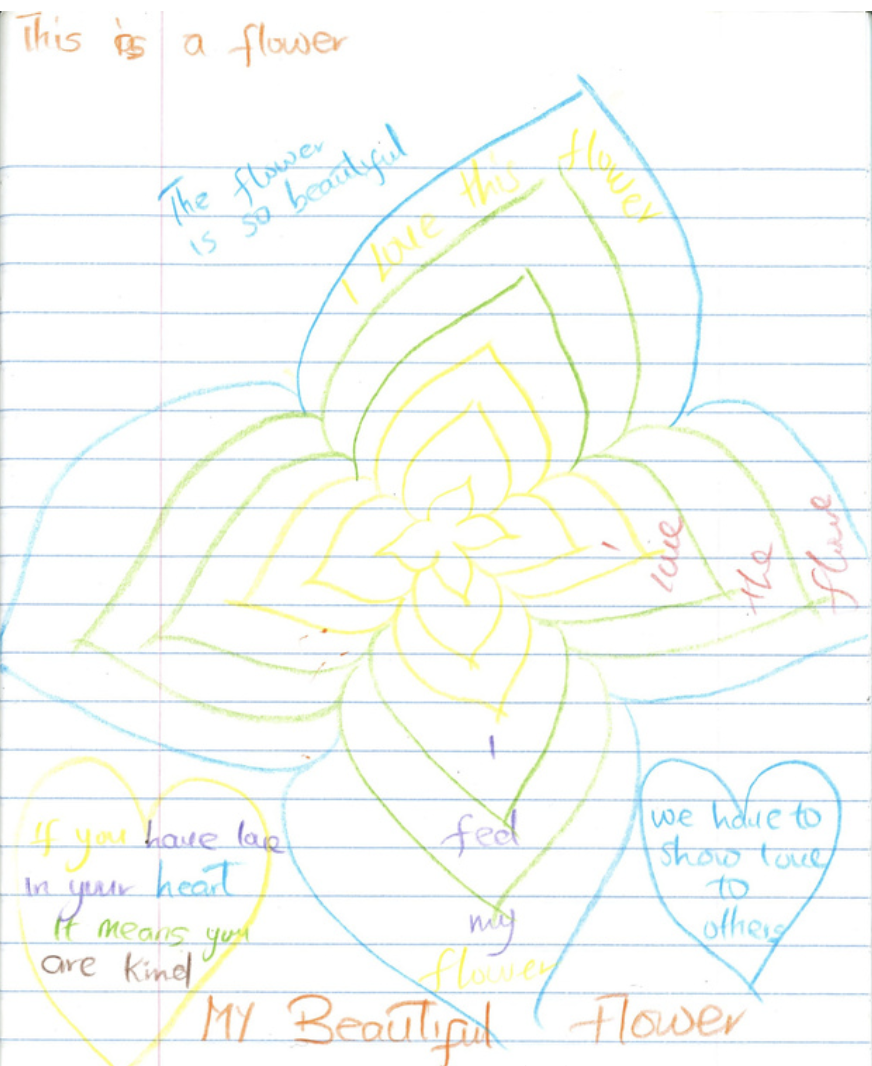 This is a flower
The flower
is so beautiful
I love this flower
I love the flowe
I
feel
my
flower
If you have love
In your heart
It means you
are kind
we have to
show love
to
others
MY Beautiful Flower